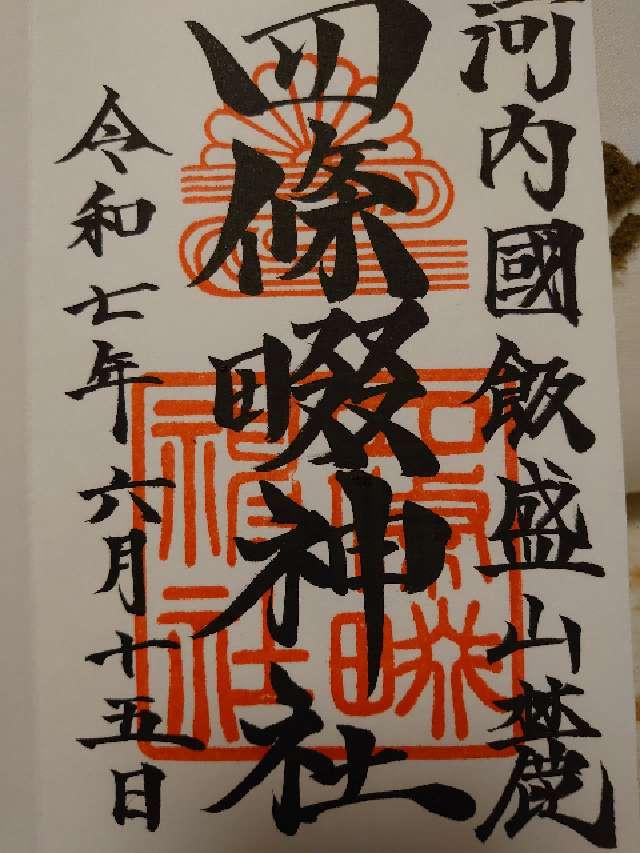 河内國飯盛山麓
四條畷神社
令和七年六月十五日
四條畷
神社